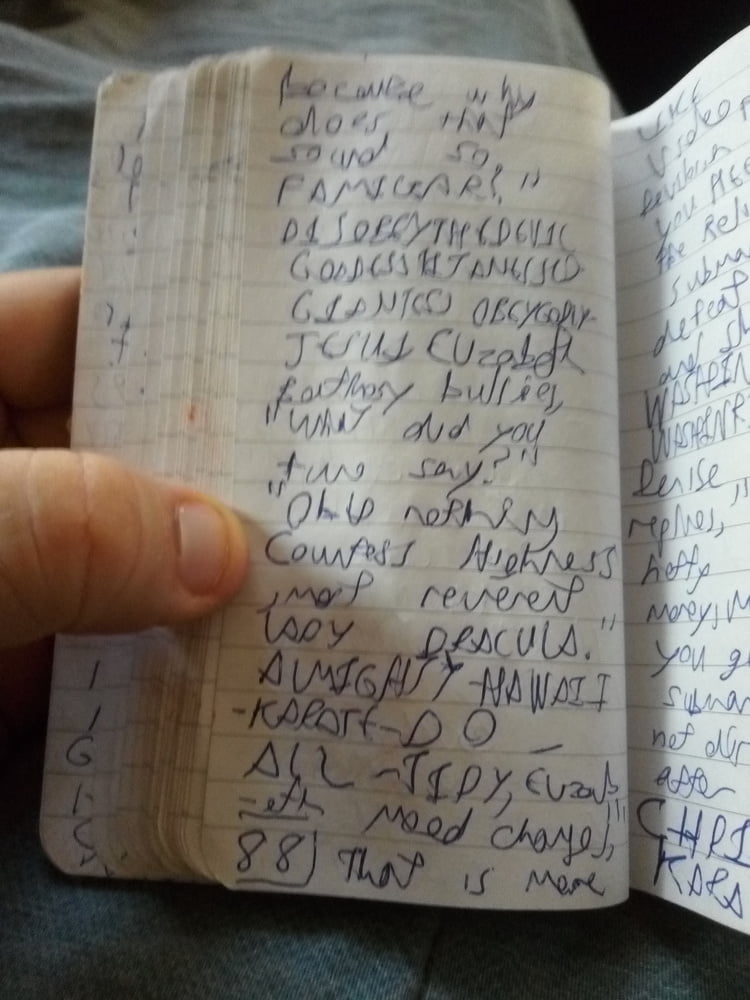 because why
does that
sound so,
FAMILIAR?,"
DISOBEYTHEDEVIL
GODDESS
GIANTESS OBEYGOD
JESUS Elizabeth
Bathory bullies,
"WHAT did you
two say?"
"Oh nothing
Countess Highness
, most reverent
LADY DRACULA."
ALMIGHTY-HAWAII
-KARATE-DO
ALL-TIDY, Elizab
-eth mood changes,"
88) That is more
LIKE
Video
you
the
subma
defeat
and
Denise
replies,"
hefty
money,
you
subma
not
after
CHRI
KARA